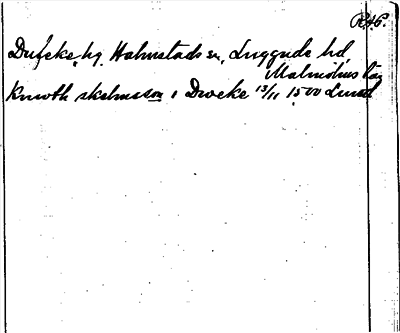 RAP.
Dufeke, hg, Halmstads sn, Luggude hd,
Malmöhus län
Knuth skalmsson i Dweke 13/11 1500 Lund